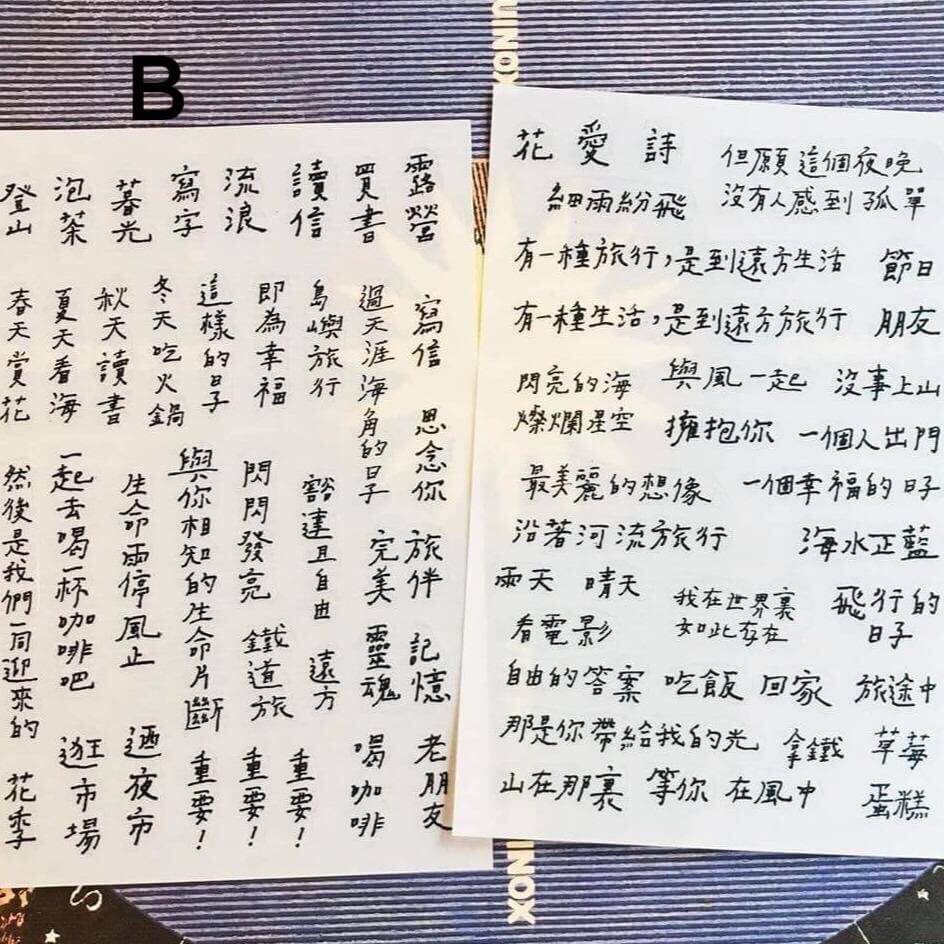 B
露營 買書 讀信 流浪 寫字 暮光 泡茶 登山
寫信 思念你
過天涯海角的日子
島嶼旅行
即為幸福
這樣的日子
冬天吃火鍋
秋天讀書
夏天看海
春天賞花
旅伴 記憶 老朋友
完美 靈魂 喝咖啡
豁達且自由 遠方 重要!
閃閃發亮 鐵道旅 重要!
與你相知的生命片斷 重要!
生命雨停風止 迺夜市
一起去喝一杯咖啡吧 逛市場
然後是我們一同迎來的 花季
花 愛 詩
但願這個夜晚
沒有人感到孤單
細雨紛飛
有一種旅行,是到遠方生活 節日
有一種生活,是到遠方旅行 朋友
閃亮的海
燦爛星空
與風一起
擁抱你
沒事上山
一個人出門
最美麗的想像 一個幸福的日子
沿著河流旅行 海水正藍
雨天 晴天
看電影
我在世界裏
如此存在
飛行的
日子
自由的答案 吃飯 回家 旅途中
那是你帶給我的光 拿鐵 草莓
蛋糕
山在那裏 等你 在風中
UINOX
UINOX